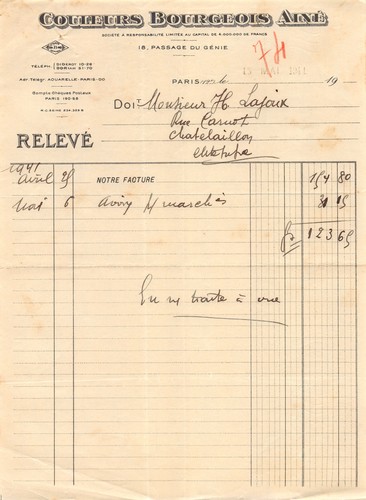 COULEURS BOURGEOIS AINÉ
SOCIÉTÉ A RESPONSABILITÉ LIMITÉE AU CAPITAL DE 5.000.000 DE FRANCS
18, PASSAGE DU GÉNIE
TÉLÉPH. DIDEROT 10-28
DORIAN 21-70
ADR. TÉLÉGR. AQUARELLE-PARIS-00
Compte Chèques Postaux
PARIS 190-28
74
MAI
PARIS 19
DOIT Monsieur H. Lajoux
Rue Carnot
Chatelaillon
RELEVÉ
1941
Avril 25 NOTRE FACTURE 154 80
Mai 6 Avoir s/ marchies 31 15
123 65
En m/ traite à vue